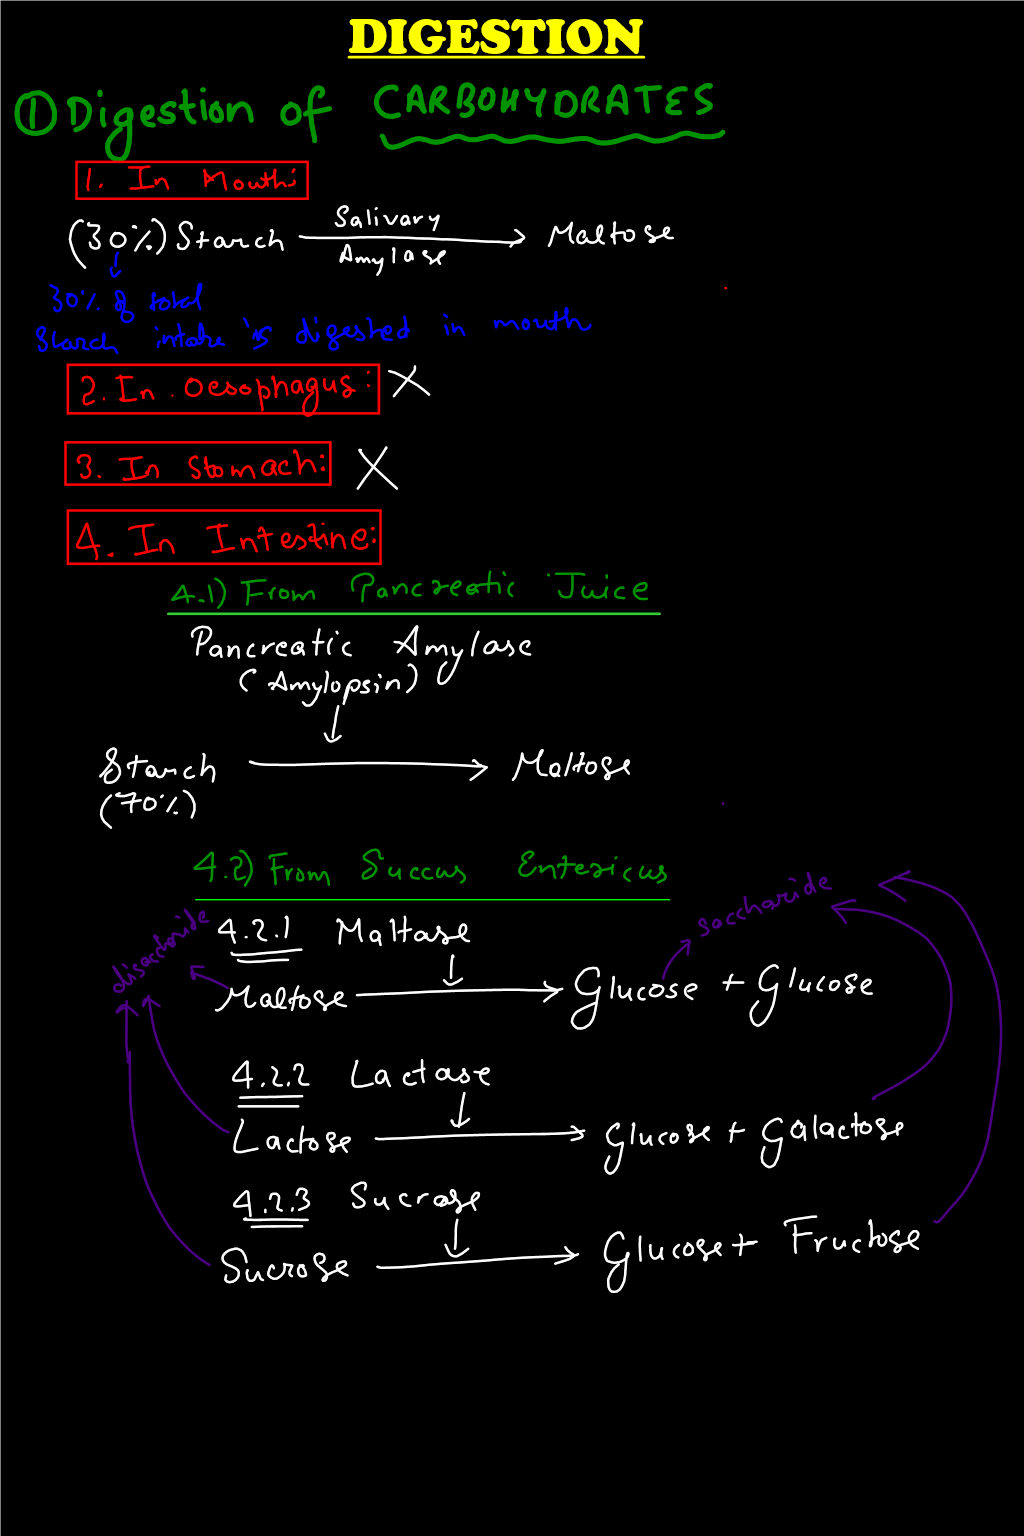 DIGESTION
① Digestion of CARBOHYDRATES
1. In Mouth:
(30%) Starch Salivary Amylase → Maltose
30% of total
Starch intake is digested in mouth
2. In Oesophagus: X
3. In Stomach: X
4. In Intestine:
4.1) From Pancreatic Juice
Pancreatic Amylase
(Amylopsin)
Starch → Maltose
(70%)
4.2) From Succus Entericus
saccharide
disaccharide
4.2.1 Maltase
Maltose → Glucose + Glucose
4.2.2 Lactase
Lactose → Glucose + Galactose
4.2.3 Sucrase
Sucrose → Glucose + Fructose